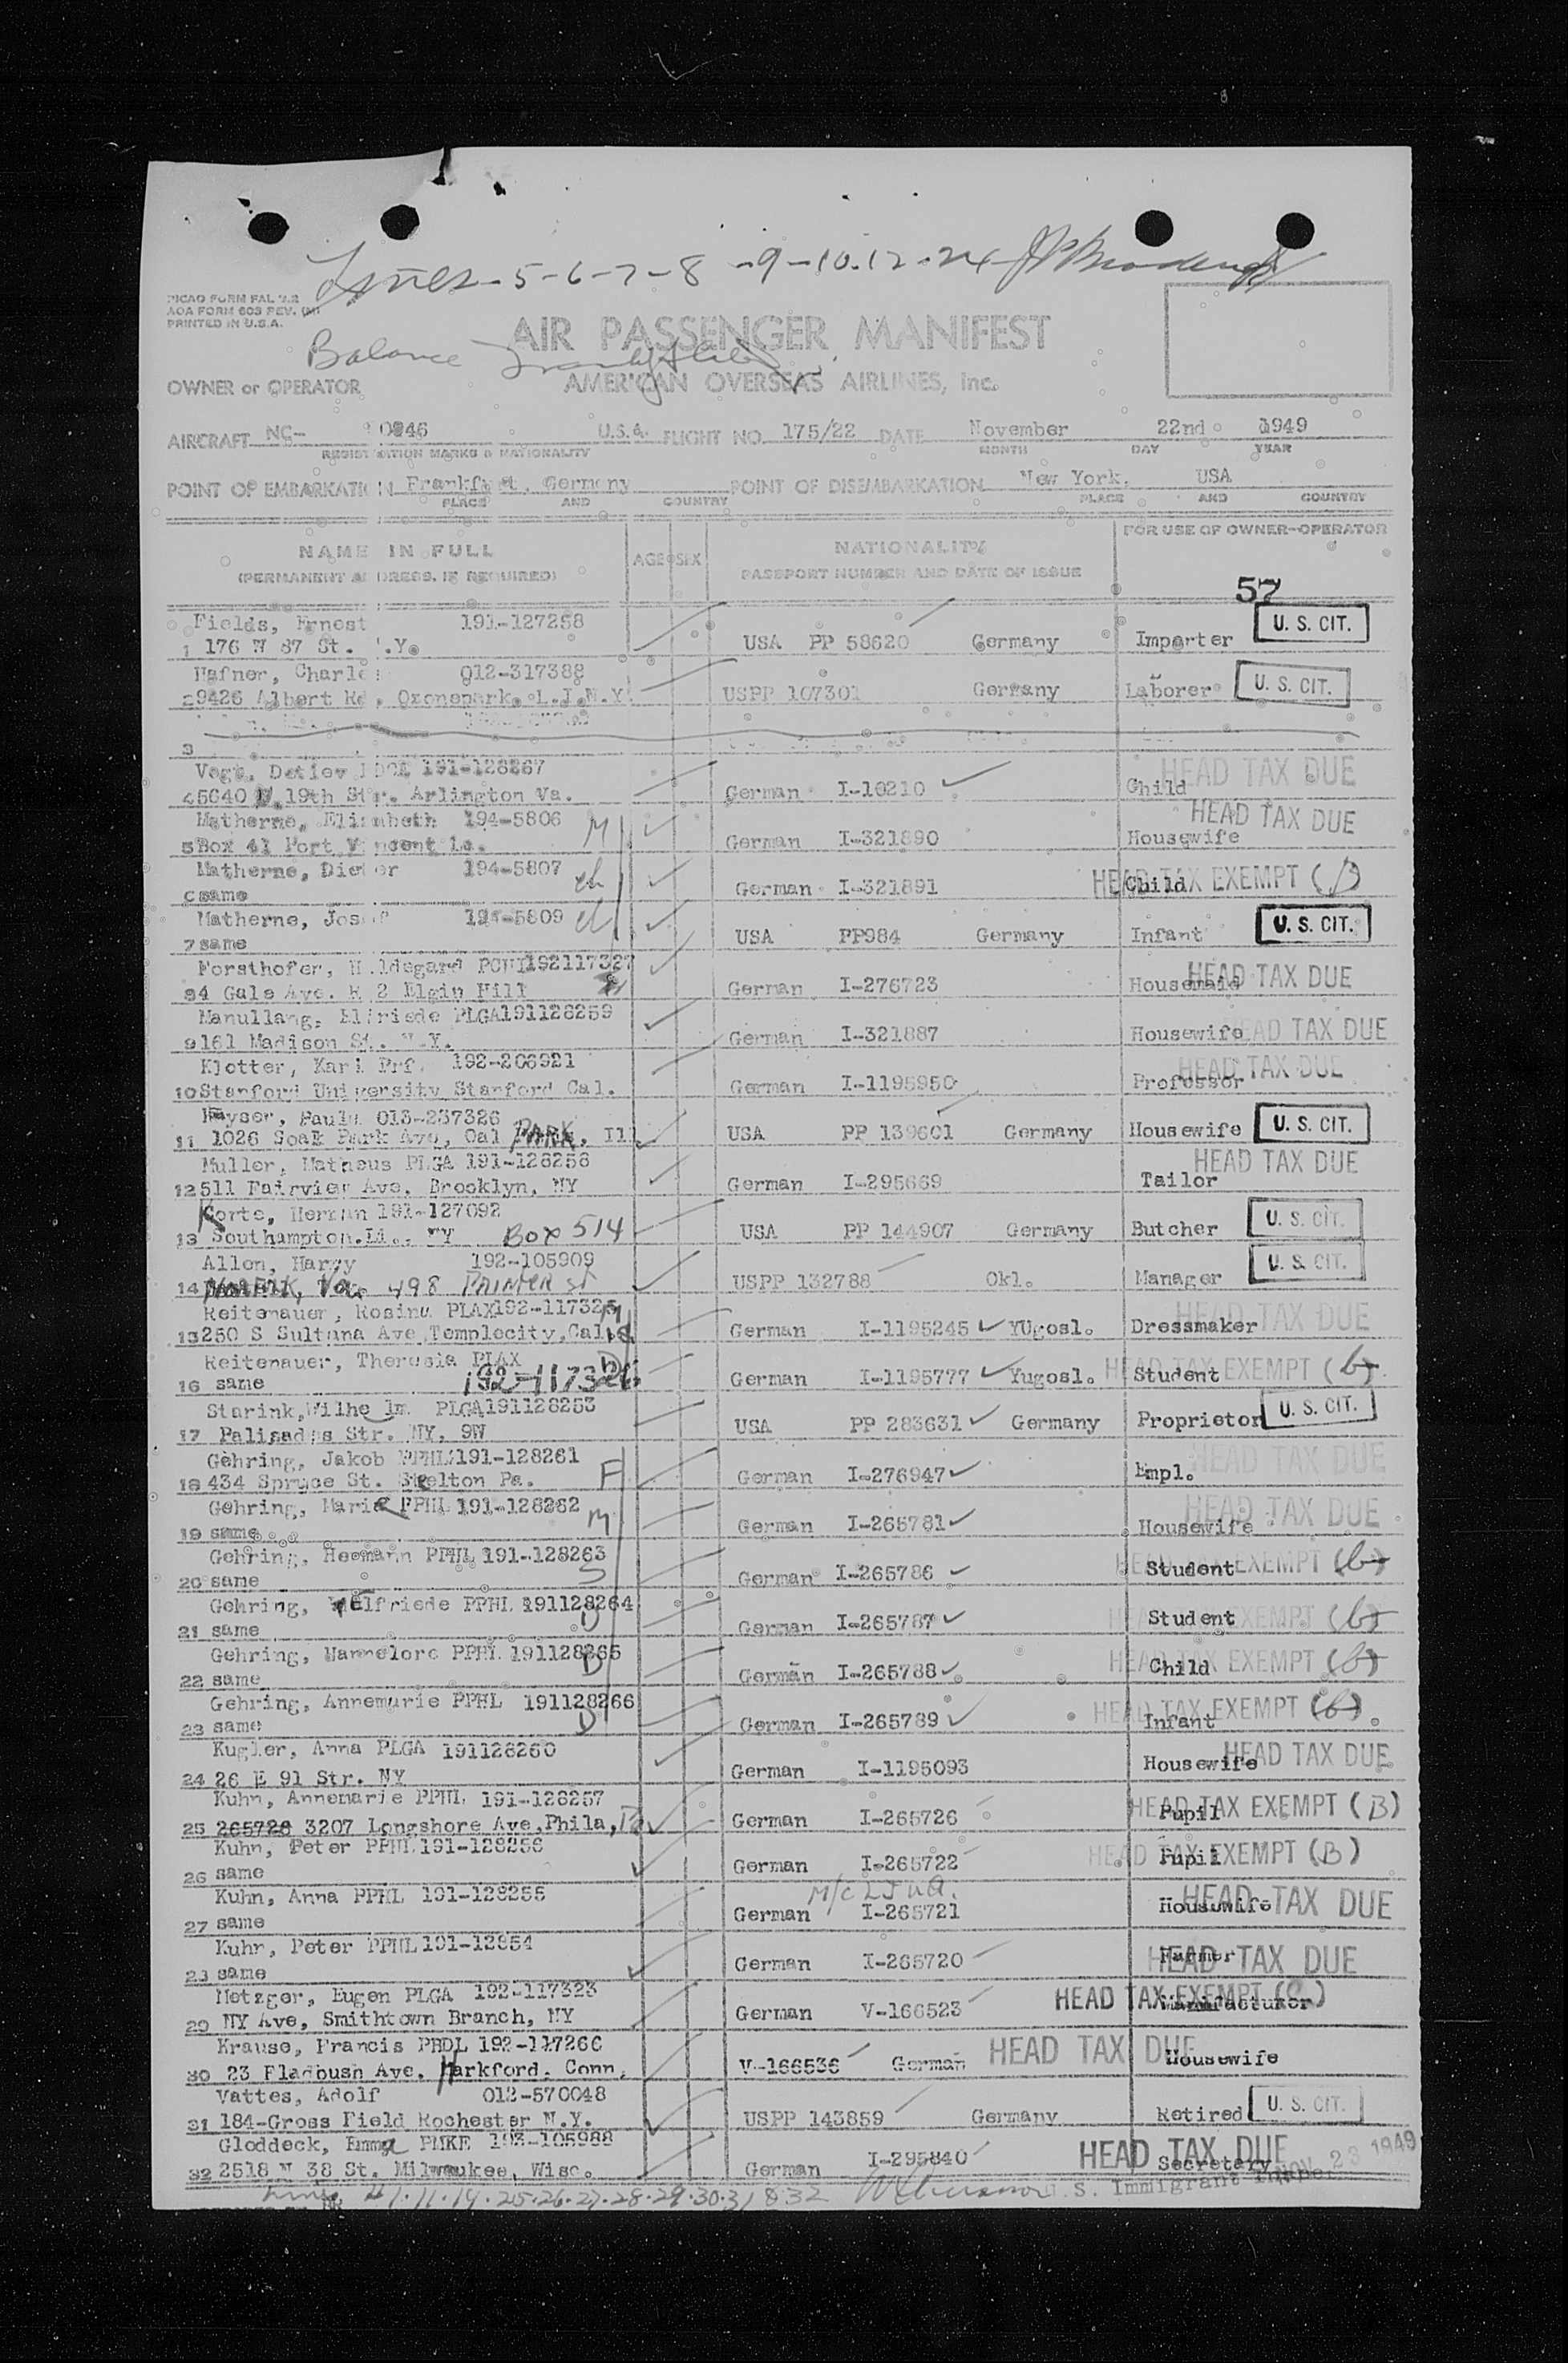 Lines-5-6-7-8-9-10-12-24
ICAO FORM FAL
AOA FORM 603 REV.
PRINTED IN U.S.A.
AIR PASSENGER MANIFEST
Balance
OWNER or OPERATOR AMERICAN OVERSEAS AIRLINES, Inc.
AIRCRAFT NC- U.S.A. FLIGHT NO. 175/22 DATE November 22nd 1949
REGIST ATION MARKS & NATIONALITY MONTH DAY YEAR
POINT OF EMBARKATI N Frankfurt, Germany POINT OF DISEMBARKATION New York, USA
PLACE AND COUNTRY PLACE AND COUNTRY
NAME IN FULL AGE SEX NATIONALITY FOR USE OF OWNER-OPERATOR
(PERMANENT A DRESS, IF REQUIRED) PASSPORT NUMBER AND DATE OF ISSUE
57
Fields, Ernest 191-127258 U. S. CIT.
1 176 W 87 St. .Y. USA PP 58620 Germany Importer
Hafner, Charle 012-317388
2 9426 Albert Rd , Ozonepark, L.I.N.Y. USPP 107301 Germany Laborer U. S. CIT.
3
Vogt, Detlev 191-128267 HEAD TAX DUE
4 5640 N. 19th St r. Arlington Va. German I-10210 Child
Matherne, Elis abeth 194-5806 M HEAD TAX DUE
5 Box 41 Port V ncent La. German I-321890 Housewife
Matherne, Diet er 194-5807 ch
6 same German I-321891 Child HEAD TAX EXEMPT (B)
Matherne, Jos 194-5809 ch U. S. CIT.
7 same USA PP984 Germany Infant
Forsthofer, H ldegard 192117327
8 4 Gale Ave. R 2 Elgin Ill German I-276723 Housemaid HEAD TAX DUE
Manullang, Elfriede PLGA191128259
9 161 Madison St. N.Y. German I-321887 Housewife HEAD TAX DUE
Klotter, Karl Prf. 192-206921 HEAD TAX DUE
10 Stanford University Stanford Cal. German I-1195950 Professor
Kayser, Paula 013-237326
11 1026 Soak Park Ave, Oal PARK, Ill USA PP 139601 Germany Housewife U. S. CIT.
Muller, Matheus PLGA 191-128258 HEAD TAX DUE
12 511 Fairview Ave, Brooklyn, NY German I-295669 Tailor
Korte, Herman 191-127092
13 Southampton.LI., NY Box 514 USA PP 144907 Germany Butcher U. S. CIT.
Allen, Harry 192-105909
14 Va. 498 PRINTER St USPP 132788 Okl. Manager U. S. CIT.
Reitenauer, Rosina PLAX192-117325 M
15 250 S Sultana Ave Templecity, Calif German I-1195245 YUgosl. Dressmaker HEAD TAX DUE
Reitenauer, Theresia PLAX D
16 same German I-1195777 Yugosl. Student HEAD TAX EXEMPT (b)
Starink, Wilhe lm PLGA191128253
17 Palisades Str. NY, 9W USA PP 283631 Germany Proprietor U. S. CIT.
Gehring, Jakob PPHL191-128261
18 434 Spruce St. Steelton Pa. F German I-276947 Empl. HEAD TAX DUE
Gehring, Marie PPHL 191-128262 HEAD TAX DUE
19 same M German I-265781 Housewife
Gehring, Hermann PPHL 191-128263
20 same S German I-265786 Student HEAD TAX EXEMPT (b)
Gehring, Elfriede PPHL 191128264
21 same D German I-265787 Student HEAD TAX EXEMPT (b)
Gehring, Hannelore PPHL 191128265
22 same D German I-265788 Child HEAD TAX EXEMPT (b)
Gehring, Annemarie PPHL 191128266
23 same D German I-265789 Infant HEAD TAX EXEMPT (b)
Kugler, Anna PLGA 191128260
24 26 E 91 Str. NY German I-1195093 Housewife HEAD TAX DUE
Kuhn, Annemarie PPHL 191-128257
25 265726 3207 Longshore Ave, Phila, Pa German I-265726 Pupil HEAD TAX EXEMPT (B)
Kuhn, Peter PPHL 191-128256
26 same German I-265722 Pupil HEAD TAX EXEMPT (B)
Kuhn, Anna PPHL 191-128255
27 same German I-265721 Housewife HEAD TAX DUE
Kuhn, Peter PPHL 191-12854
28 same German I-265720 Farmer HEAD TAX DUE
Metzger, Eugen PLGA 192-117323
29 NY Ave, Smithtown Branch, NY German V-166523 Manufacturer HEAD TAX EXEMPT (C)
Krause, Francis PBDL 192-117266
30 23 Fladbush Ave. Harkford. Conn. V-166536 German Housewife HEAD TAX DUE
Vattes, Adolf 012-570048
31 184-Gross Field Rochester N.Y. USPP 143859 Germany Retired U. S. CIT.
Gloddeck, Emma PMKE 193-105988
32 2518 N 38 St. Milwaukee, Wisc. German I-295840 Secretary HEAD TAX DUE
NOV 23 1949
U. S. Immigrant Inspe.